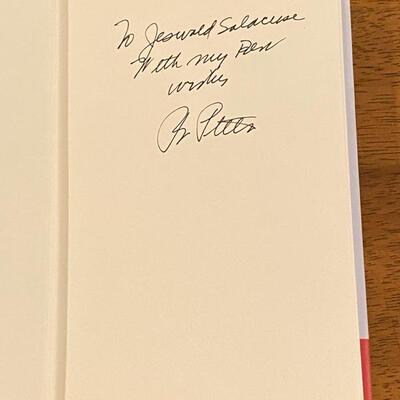 To Jeswald Salacuse
With my best
wishes